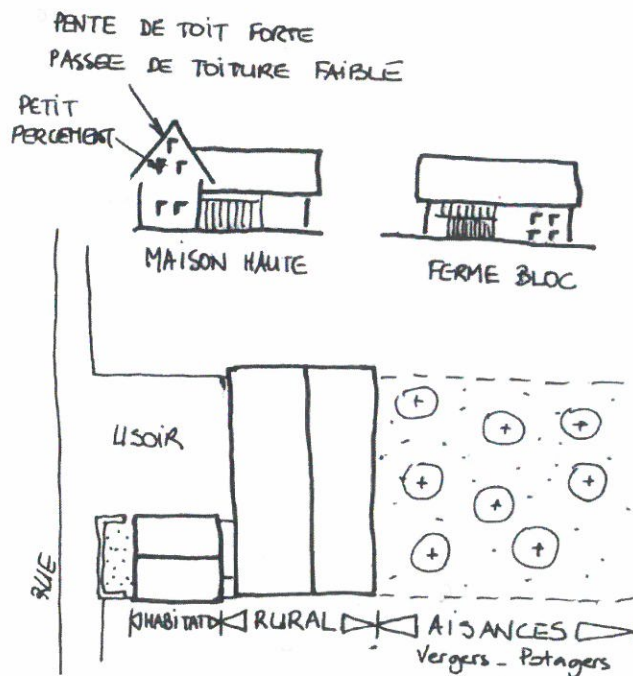 PENTE DE TOIT FORTE
PASSEE DE TOITURE FAIBLE
PETIT
PERCEMENT
MAISON HAUTE
FERME BLOC
USOIR
RUE
HABITAT
RURAL
AISANCES
Vergers - Potagers